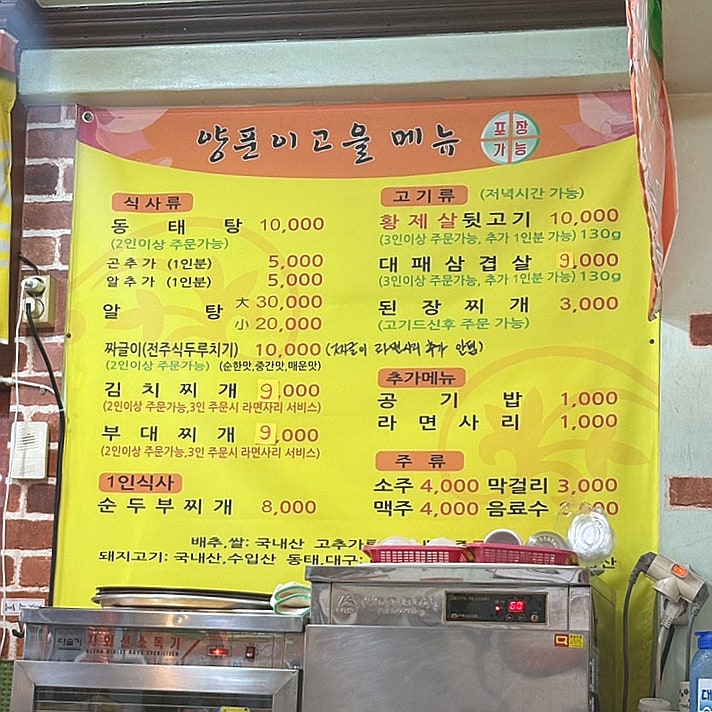 양푼이고을 메뉴
포장
가능
식사류
동태탕 10,000
(2인이상 주문가능)
곤추가 (1인분) 5,000
알추가 (1인분) 5,000
알탕 大 30,000
小 20,000
짜글이(전주식두루치기) 10,000 (짜글이 라면사리 추가 안됨)
(2인이상 주문가능) (순한맛,중간맛,매운맛)
김치찌개 9,000
(2인이상 주문가능,3인 주문시 라면사리 서비스)
부대찌개 9,000
(2인이상 주문가능,3인 주문시 라면사리 서비스)
1인식사
순두부찌개 8,000
고기류 (저녁시간 가능)
황제살뒷고기 10,000
(3인이상 주문가능, 추가 1인분 가능) 130g
대패삼겹살 9,000
(3인이상 주문가능, 추가 1인분 가능) 130g
된장찌개 3,000
(고기드신후 주문 가능)
추가메뉴
공기밥 1,000
라면사리 1,000
주류
소주 4,000 막걸리 3,000
맥주 4,000 음료수
배추,쌀: 국내산 고추가루
돼지고기: 국내산,수입산 동태,대구:
자외선소독기
ULTRA VIOLET RAYS STERILIZER
60